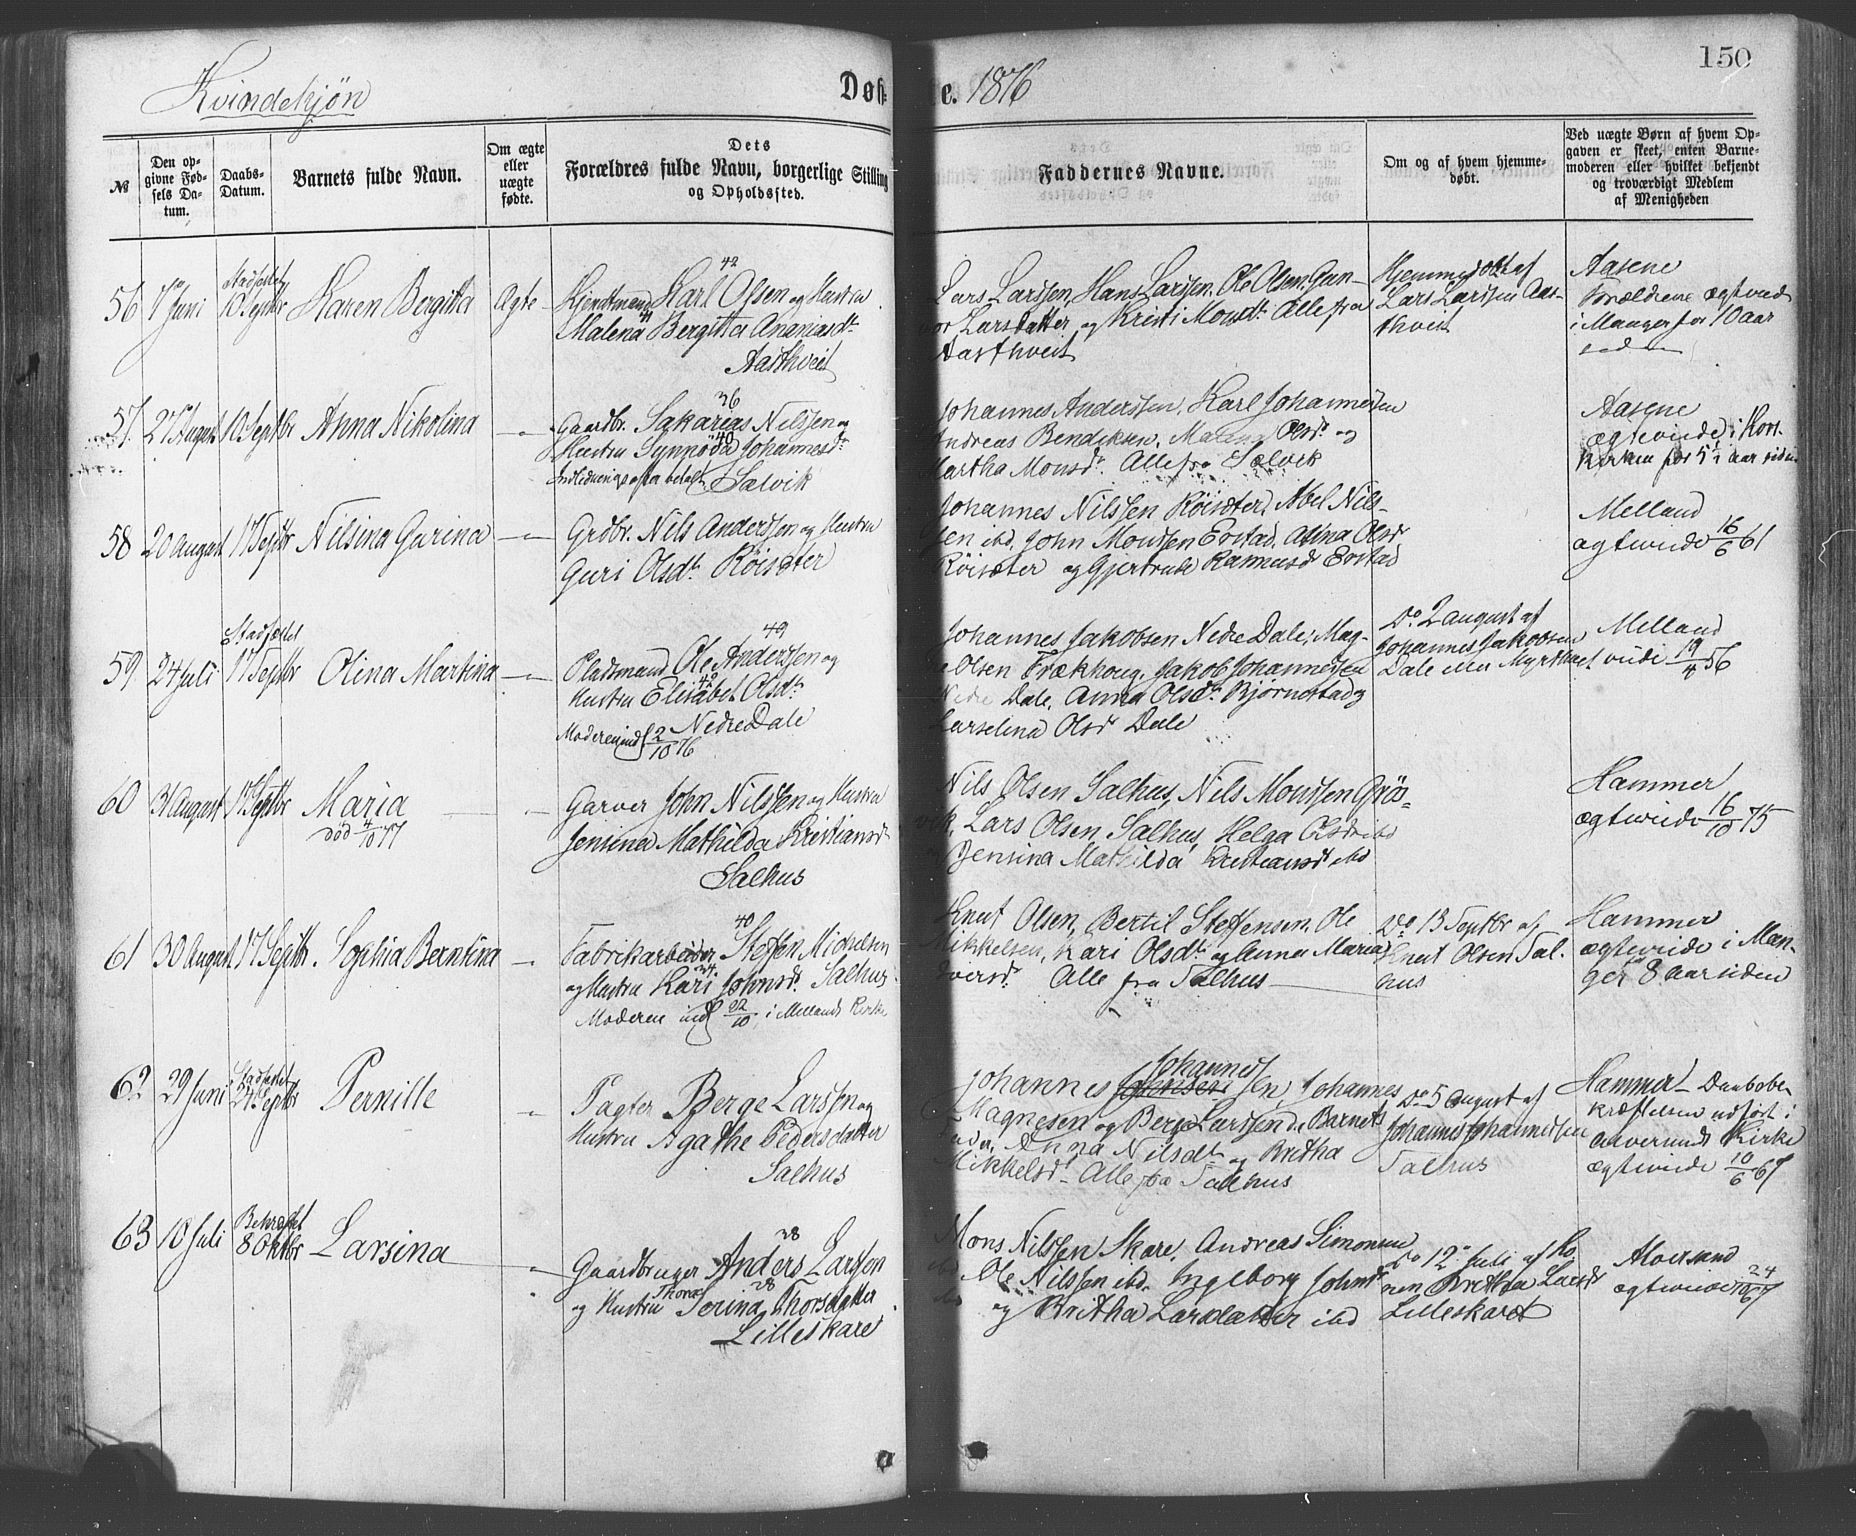 Kvindekjøn
Døb- e. 1876
150
№
Den opgivne Fødsels Datum.
Daabs-Datum.
Barnets fulde Navn.
Om ægte eller uægte fødte.
Dets Forældres fulde Navn, borgerlige Stilling og Opholdssted.
Faddernes Navne.
Om og af hvem hjemmedøbt.
Ved uægte Børn af hvem Opgaven er skeet, enten Barnemoderen eller hvilket bekjendt og troværdigt Medlem af Menigheden
56 7 Juni Stadfestet 10 Septbr Karen Bergitta Ægte
42
Karl Olsen og Hustru
41
Malena Bergitta Ananiasdt.
Aasthveit
Lars Larssen, Hans Larssen, Ole Olsen, Gun-
vor Larsdatter og Kristi Monsdt. Alle fra
Aasthveit
Hjemmedøbt af
Lars Larssen Aas-
thveit
Aasene
Forældrene ægteviede
i Manger for 10 aar
siden
57 27 August 10 Septbr Anna Nikolina
36
Gaardbr. Sakarias Nilssen og
40
Hustru Synnöva Johannesdt.
Indledningsofter betalt Salvik
Johannes Anderssen, Karl Johannessen
Andreas Bendiksen, Olsdt. og
Martha Monsdt. Alle fra Salvik
Aasene
ægteviede i Kors
kirken for 5½ aar siden
58 20 August 17 Septbr Nilsina Gurina
Grdbr. Nils Anderssen og Hustru
Guri Olsdt. Röisæter
Johannes Nilssen Röisæter, Abel Nils-
sen ibd. John Monssen Evstad, Anna Olsdt
Röisæter og Gjertrude Rasmusdt Evstad
Melland
ægteviede 16/6 61
59 24 Juli Stadfæstet 17 Septbr Olina Martina
49
Pladsmand Ole Anderssen og
42
Hustru Elisabet Olsdt.
Nedre Dale
Moderen ind 2/10 76
Johannes Jakobsen Nedre Dale, Mag-
ne Olsen Frækhoug, Jakob Johannessen
Nedre Dale, Anna Olsdt. Bjørnestad og
Larselina Olsdt Dale
Do 2 august af
Johannes Jakobsen
Dale eller Myrthvet
Melland
viede 19/4 56
60 31 August 17 Septbr Maria
død 4/10 77
Garver John Nilssen og Hustru
Jensina Mathilda Kristiansdt
Salhus
Nils Olsen Salhus, Nils Monssen Grös-
vik, Lars Olsen Salhus, Helga Olsdt ibd
og Jensina Mathilda Kristiansdt ibd
Hammer
ægteviede 16/10 75
61 30 August 17 Septbr. Sophia Berntina
40
Fabrikarbeider Steffen Mickelsen
34
og Hustru Kari Johnsdt. Salhus
Moderen ind 22/10 i Mellands Kirke
Knut Olsen, Bertil Steffensen, Ole
Mikkelsen, Kari Olsdt. og Anna Maria
Iversdt. Alle fra Salhus
Do 13 Septbr af
Knut Olsen Sal-
hus
Hammer
ægteviede i Man-
ger for 8 aar siden
62 29 Juni Stadfestet 24 Septbr Pernille
Pagter Berge Larssen og
Hustru Agathe Pedersdatter
Salhus
Johannes
Johannes sen, Johannes
Magnesen og Berge Larssen Barnets
Fader, Anna Nilsdt og Britha
Mikkelsdt. Alle fra Salhus
Do 5 august af
Johannes Johannessen
Salhus
Hammer - Daabsbe-
kræftelsen udført i
Kirke
ægteviede 10/6 67
63 10 Juli Bekræftet 8 Oktbr Larsina
28
Gaardbruger Anders Larssen
Thora 28
og Hustru Serina Thorsdatter
Lilleskare
Mons Nilssen Skare, Andreas Simonsen
ibd. Ole Nilssen ibd. Ingeborg Johnsdt
ibd og Britha Larsdatter ibd
Do 12te Juli af Ko-
nen Brithe Larsdt
Lilleskaret
Alversund
ægteviede 24/10 67